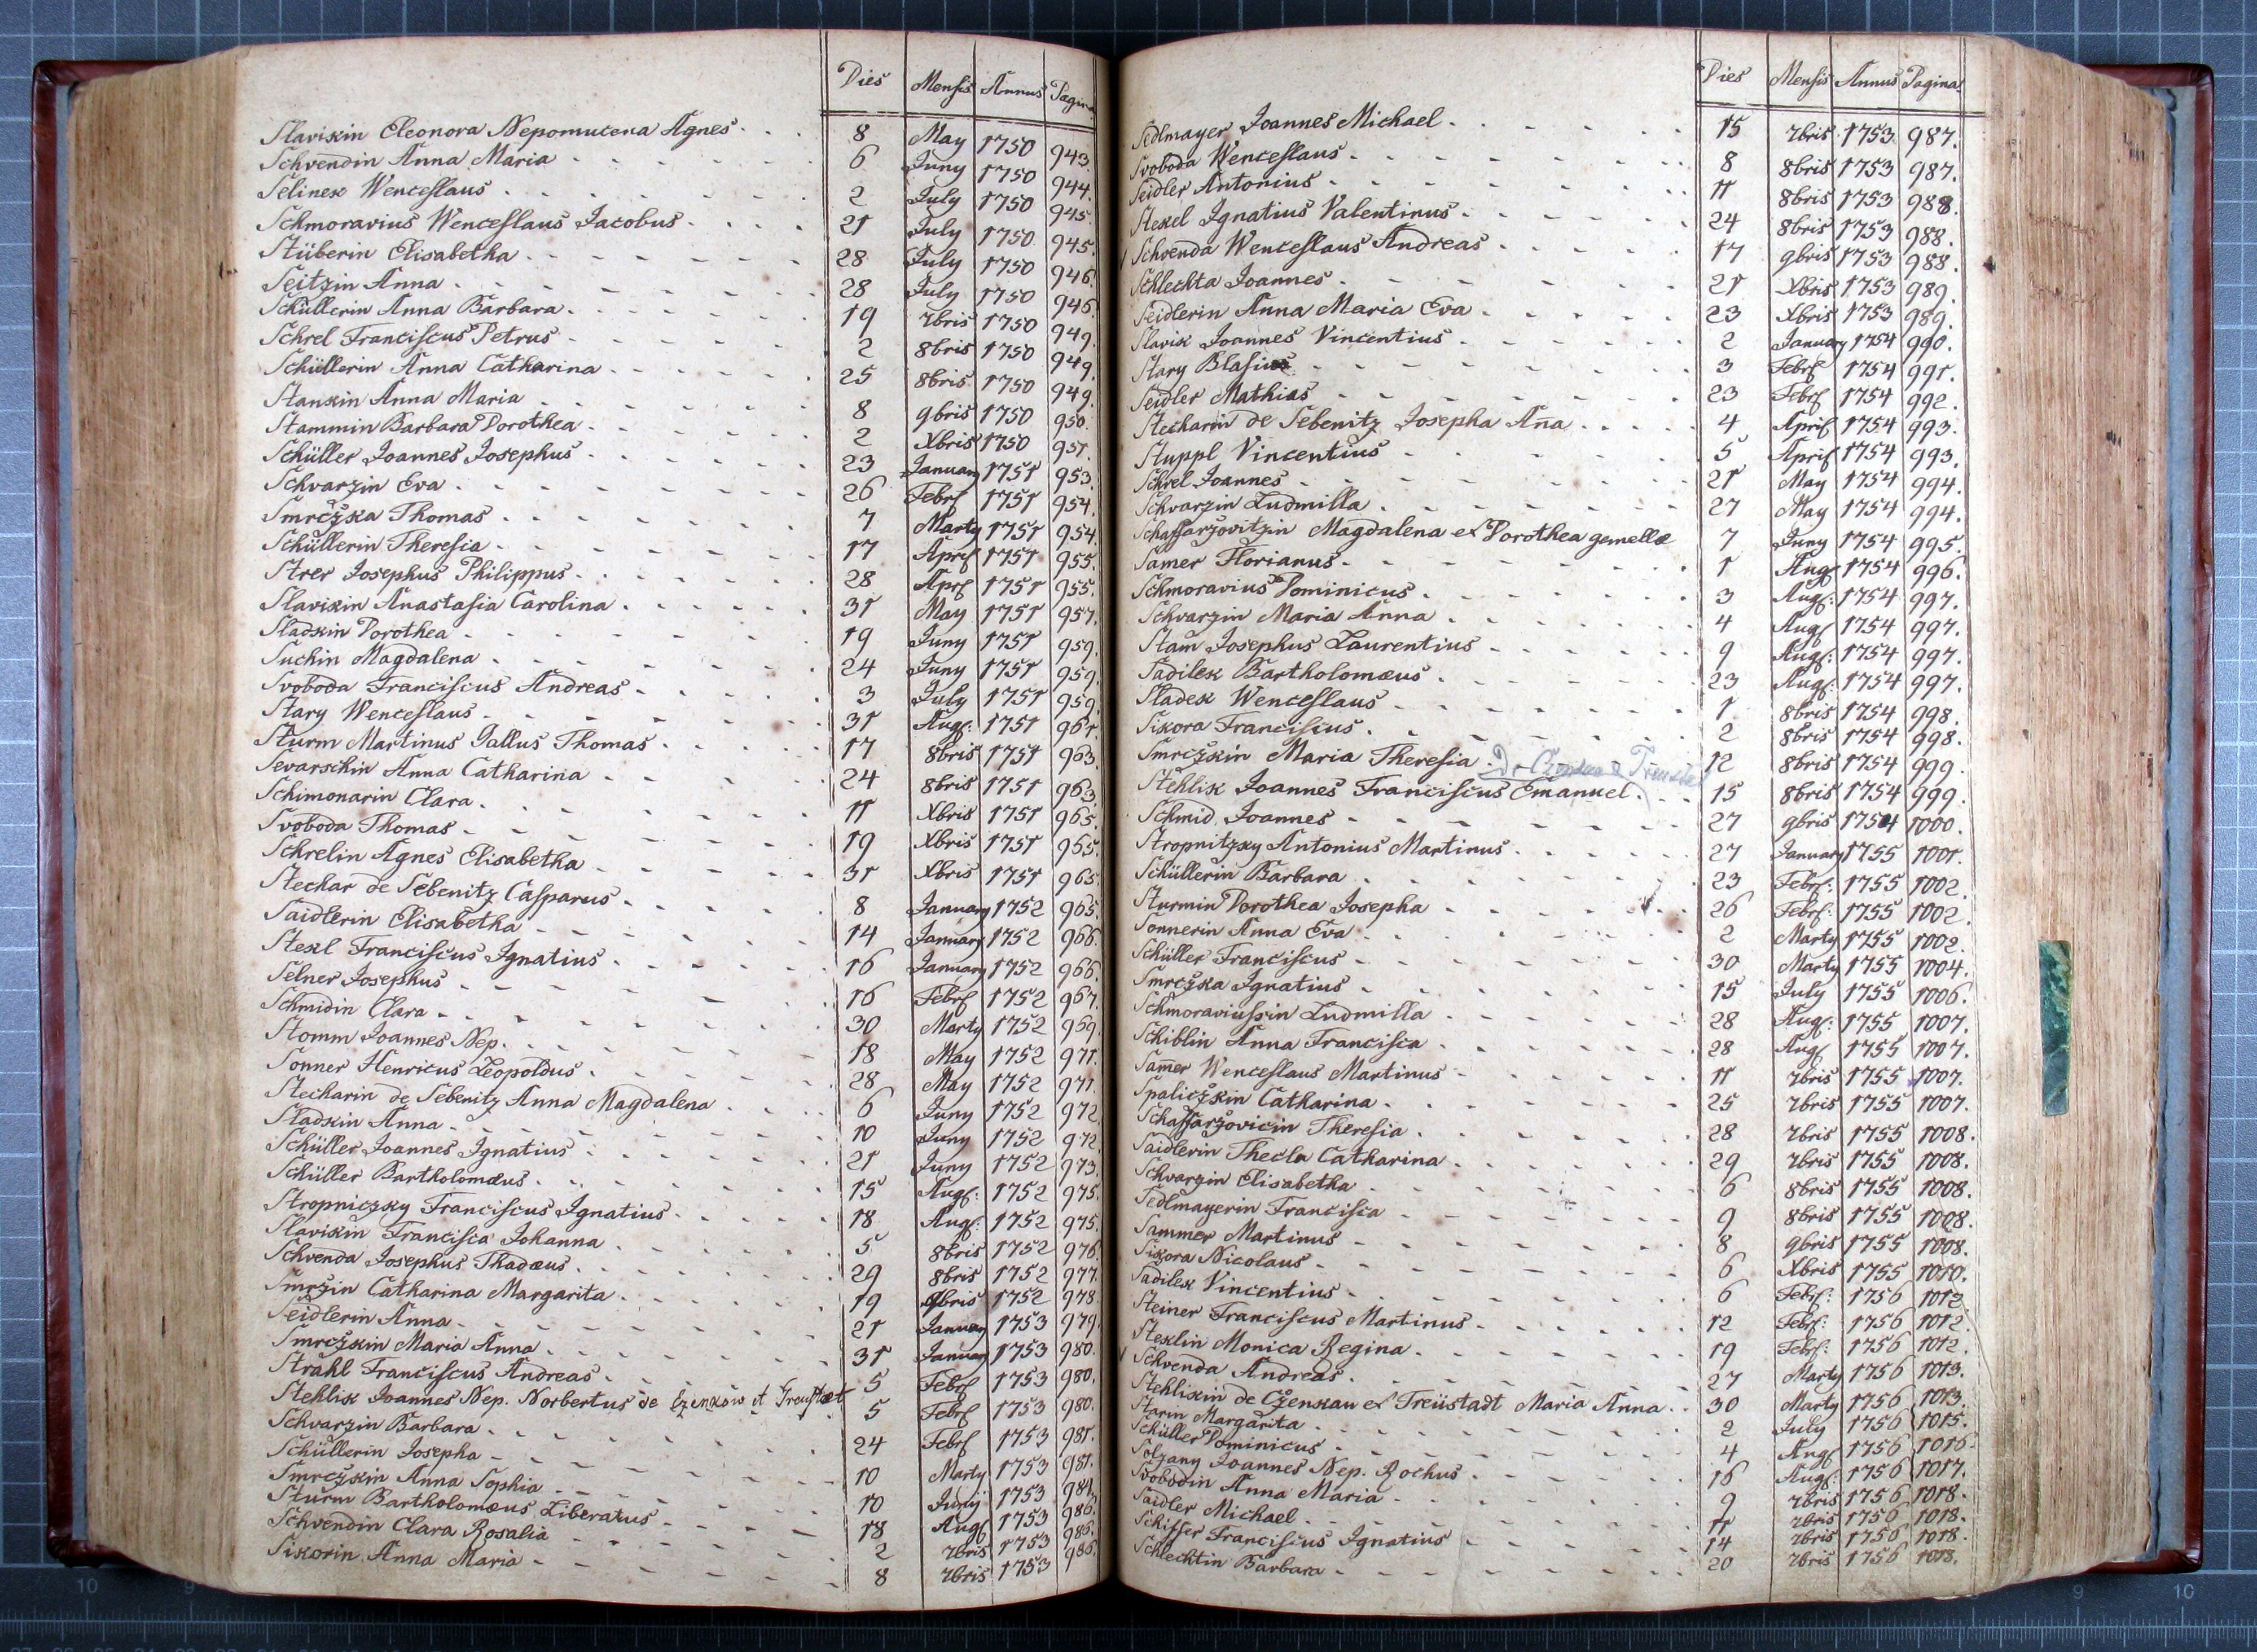 Dies Mensis Annus Pagina
Slavikin Eleonora Nepomucena Agnes 8 May 1750 943.
Schvendin Anna Maria 6 Juny 1750 944.
Selinek Wenceslaus 2 July 1750 945.
Schmoravius Wenceslaus Jacobus 21 July 1750 945.
Stüberin Elisabetha 28 July 1750 946.
Seitzin Anna 28 July 1750 946.
Schüllerin Anna Barbara 19 7bris 1750 949.
Schrel Franciscus Petrus 2 8bris 1750 949.
Schüllerin Anna Catharina 25 8bris 1750 949.
Stankin Anna Maria 8 9bris 1750 950.
Stammin Barbara Dorothea 2 Xbris 1750 951.
Schüller Joannes Josephus 23 January 1751 953.
Schvarzin Eva 26 Febr 1751 954.
Smrczka Thomas 7 Marty 1751 954.
Schüllerin Theresia 17 April 1751 955.
Strer Josephus Philippus 28 Apr 1751 955.
Slavikin Anastasia Carolina 31 May 1751 957.
Sladkin Dorothea 19 Juny 1751 959.
Suchin Magdalena 24 Juny 1751 959.
Svoboda Franciscus Andreas 3 July 1751 959.
Stary Wenceslaus 31 Aug: 1751 961.
Sturm Martinus Gallus Thomas 17 8bris 1751 963.
Sevarschin Anna Catharina 24 8bris 1751 963.
Schimonarin Clara 11 Xbris 1751 965.
Svoboda Thomas 19 Xbris 1751 965.
Schrelin Agnes Elisabetha 31 Xbris 1751 965.
Stechar de Sebenitz Casparus 8 January 1752 965.
Saidlerin Elisabetha 14 January 1752 966.
Stekl Franciscus Ignatius 16 January 1752 966.
Selner Josephus 16 Febr 1752 967.
Schmidin Clara 30 Marty 1752 969.
Stomm Joannes Nep. 18 May 1752 971.
Sonner Henricus Leopoldus 28 May 1752 971.
Stecharin de Sebenitz Anna Magdalena 6 Juny 1752 972.
Sladkin Anna 10 Juny 1752 972.
Schüller Joannes Ignatius 21 Juny 1752 973.
Schüller Bartholomæus 15 Aug: 1752 975.
Stropniczky Franciscus Ignatius 18 Aug: 1752 975.
Slavikin Francisca Johanna 5 8bris 1752 976.
Schvenda Josephus Thadæus 29 8bris 1752 977.
Smrzin Catharina Margarita 19 9bris 1752 978
Seidlerin Anna 21 January 1753 979.
Smrczkin Maria Anna 31 January 1753 980.
Strahl Franciscus Andreas 5 Febr 1753 980.
Stehlik Joannes Nep. Norbertus de Czenkow et Treustat 5 Febr 1753 980.
Schvarzin Barbara 24 Febr 1753 981.
Schüllerin Josepha 10 Marty 1753 981.
Smrczkin Anna Sophia 10 Juny 1753
Sturm Bartholomæus Liberatus 18 Aug 1753 986.
Schvendin Clara Rosalia 2 7bris 1753 986.
Sikorin Anna Maria 8 7bris 1753 986.
Dies Mensis Annus Pagina
Sedlmayer Joannes Michael 15 7bris 1753 987.
Svoboda Wenceslaus 8 8bris 1753 987.
Seidler Antonius 11 8bris 1753 988.
Stekel Ignatius Valentinus 24 8bris 1753 988.
Schvenda Wenceslaus Andreas 17 9bris 1753 988.
Schlechta Joannes 21 Xbris 1753 989.
Seidlerin Anna Maria Eva 23 Xbris 1753 989.
Slavik Joannes Vincentius 2 January 1754 990.
Stary Blasius 3 Febr 1754 991.
Seidler Mathias 23 Febr 1754 992.
Stecharin de Sebenitz Josepha Aña 4 April 1754 993.
Stuppl Vincentius 5 April 1754 993.
Schrel Joannes 21 May 1754 994.
Schvarzin Ludmilla 27 May 1754 994.
Schaffarzovitzin Magdalena et Dorothea gemellæ 7 Juny 1754 995.
Samer Florianus 1 Aug 1754 996.
Schmoravius Dominicus 3 Aug: 1754 997.
Schvarzin Maria Anna 4 Aug 1754 997.
Stam Josephus Laurentius 9 Aug: 1754 997.
Sadilek Bartholomæus 23 Aug: 1754 997.
Sladek Wenceslaus 1 8bris 1754 998.
Sikora Franciscus 2 8bris 1754 998.
Smrczkin Maria Theresia 12 8bris 1754 999.
Stehlik Joannes Franciscus Emanuel 15 8bris 1754 999.
Schmid Joannes 27 9bris 1754 1000.
Stropnitzky Antonius Martinus 27 January 1755 1001.
Schüllerin Barbara 23 Febr: 1755 1002.
Sturmin Dorothea Josepha 26 Febr: 1755 1002.
Sonnerin Anna Eva 2 Marty 1755 1002.
Schüller Franciscus 30 Marty 1755 1004.
Smrczka Ignatius 15 July 1755 1006.
Schmoraviussin Ludmilla 28 Aug: 1755 1007.
Schiblin Anna Francisca 28 Aug 1755 1007.
Sam̄er Wenceslaus Martinus 11 7bris 1755 1007.
Spaliczkin Catharina 25 7bris 1755 1007.
Schaffarzovicin Theresia 28 7bris 1755 1008.
Saidlerin Thecla Catharina 29 7bris 1755 1008.
Schvarzin Elisabetha 6 8bris 1755 1008.
Sedlmayerin Francisca 9 8bris 1755 1008.
Sammer Martinus 8 9bris 1755 1008.
Sikora Nicolaus 6 Xbris 1755 1010.
Sadilek Vincentius 6 Febr: 1756 1012.
Steiner Franciscus Martinus 12 Febr: 1756 1012.
Steklin Monica Regina 19 Febr: 1756 1012.
Schvenda Andreas 27 Marty 1756 1013.
Stehlikin de Czenkau et Treüstadt Maria Anna 30 Marty 1756 1013.
Starin Margarita 2 July 1756 1015.
Schüller Dominicus 4 Aug 1756 1016
Solzany Joannes Nep. Rochus 16 Aug: 1756 1017.
Svobodin Anna Maria 9 7bris 1756 1018.
Saidler Michael 11 7bris 1756 1018.
Schiffer Franciscus Ignatius 14 7bris 1756 1018.
Schlechtin Barbara 20 7bris 1756 1018.